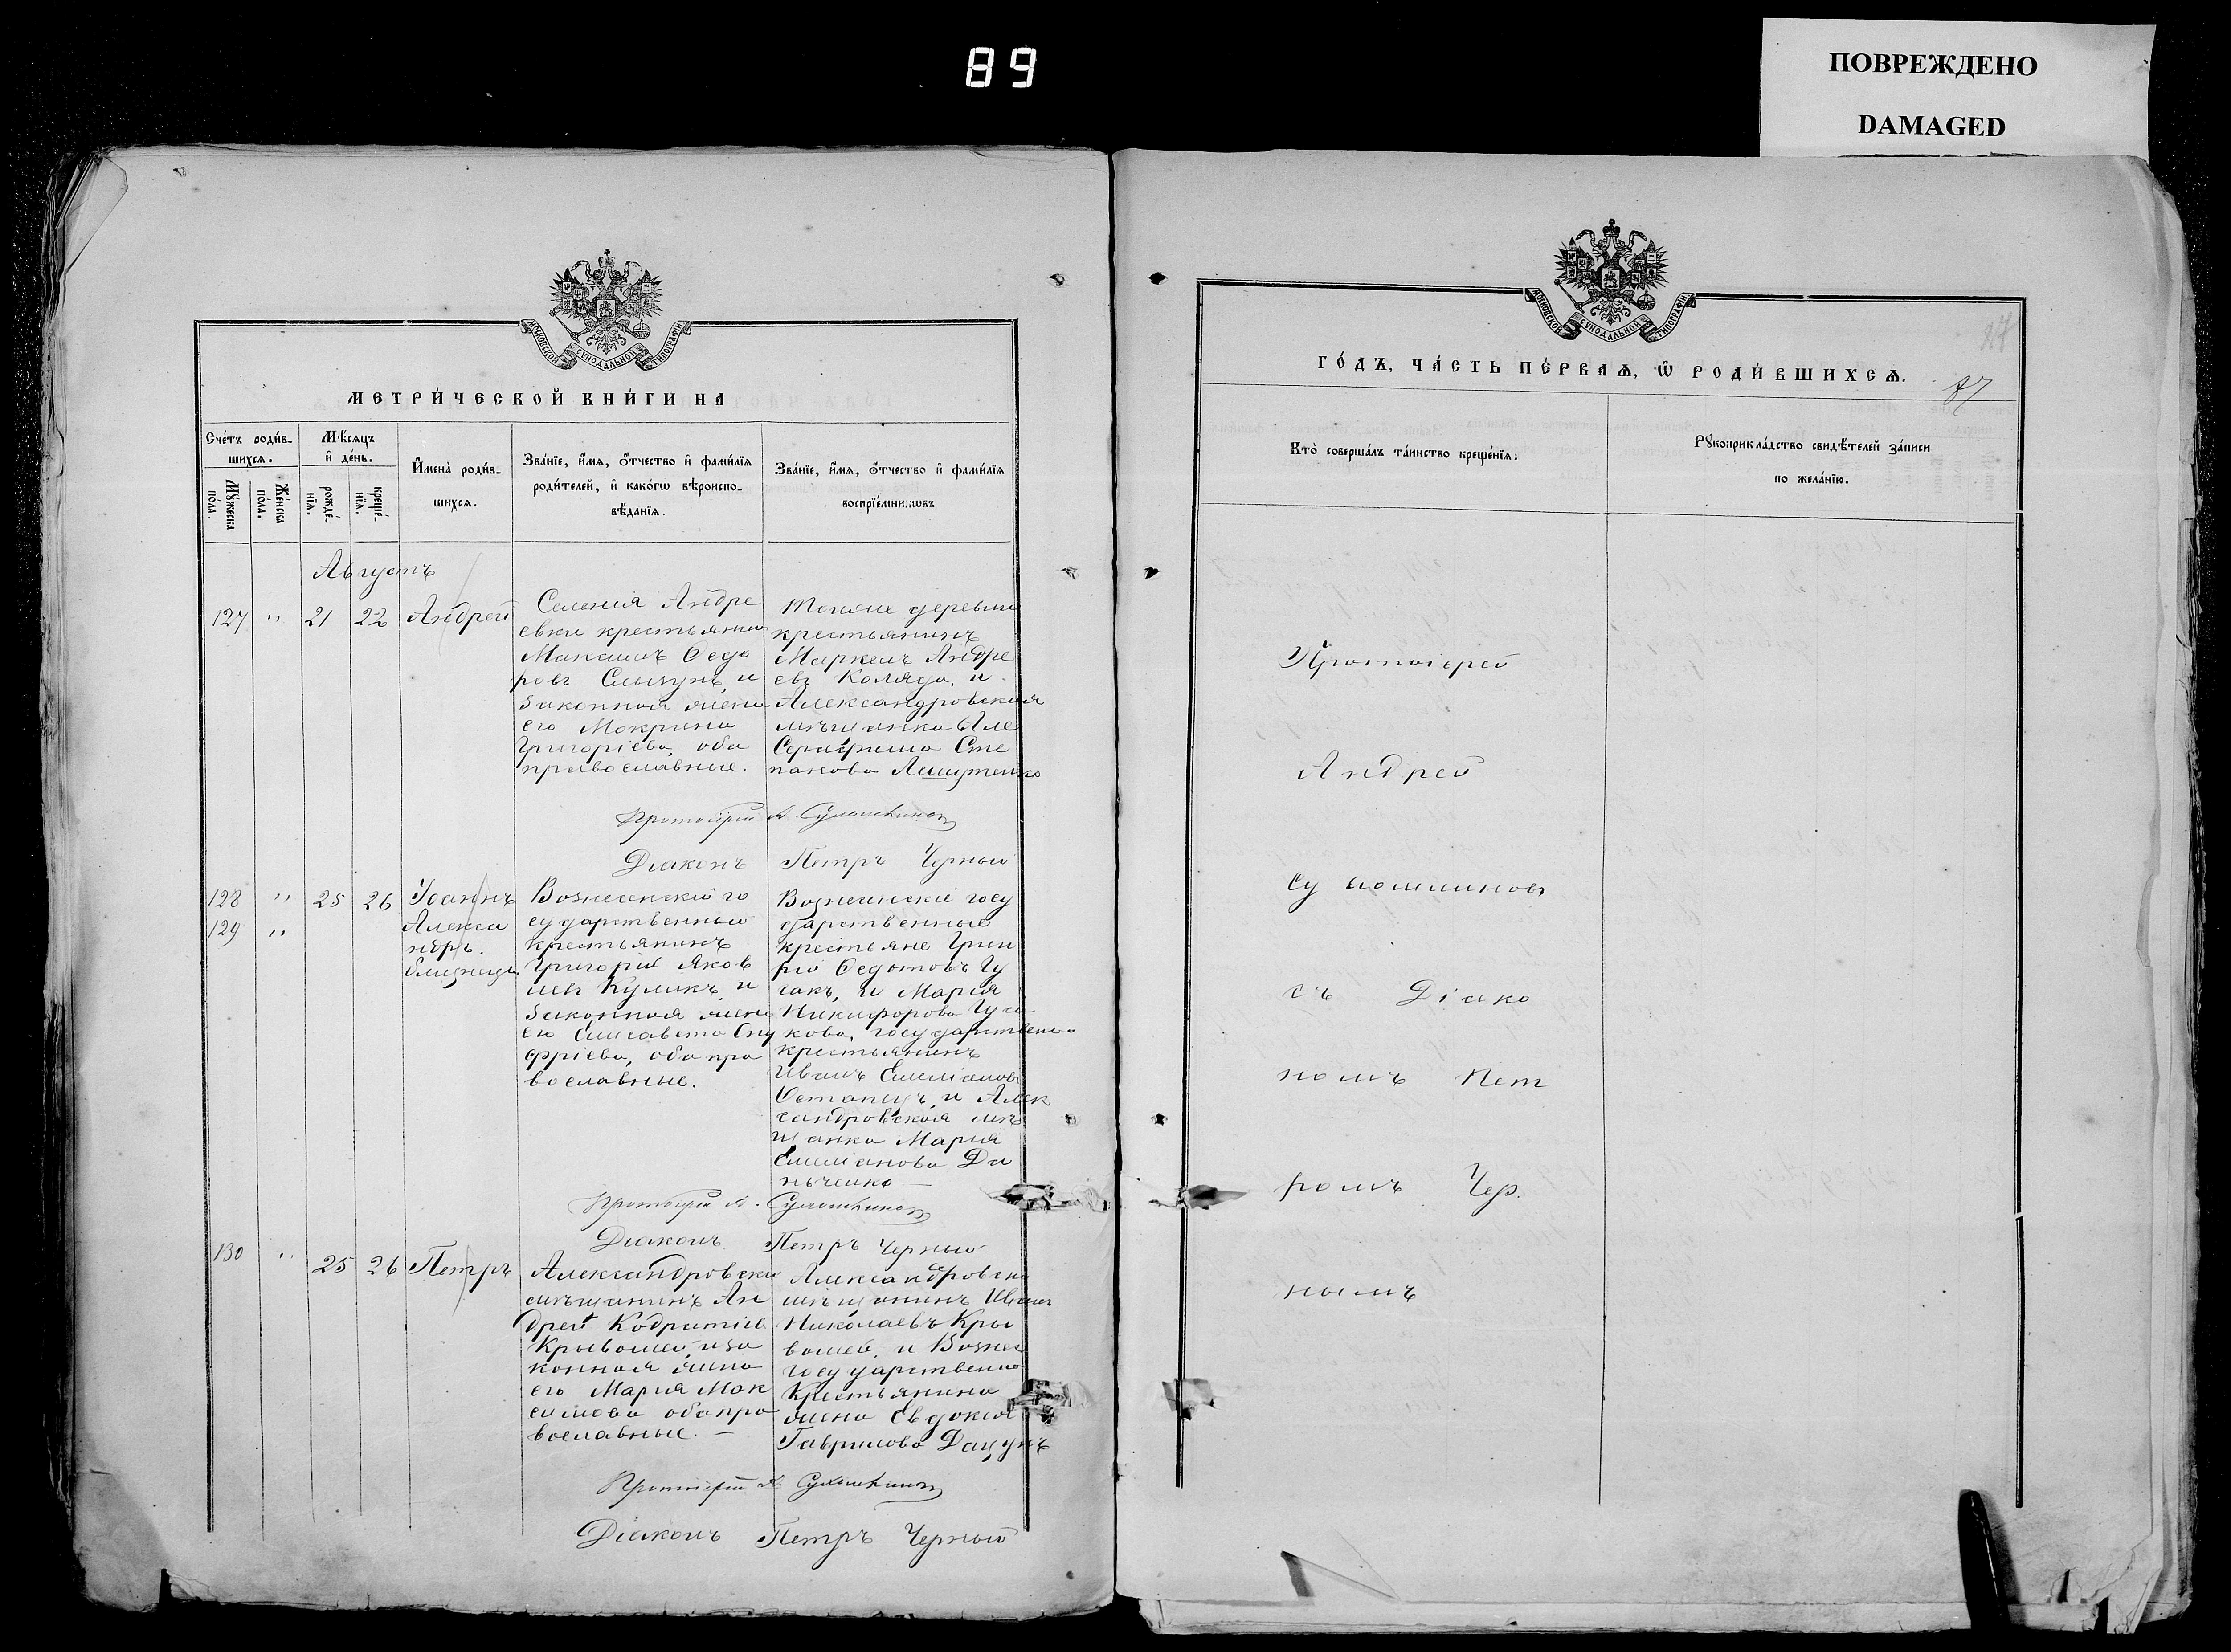 89
ПОВРЕЖДЕНО
DAMAGED
МОСКОВСКОЙ СѴНОДАЛЬНОЙ ТИПОГРАФІИ
МЕТРИ́ЧЕСКОЙ КНИ́ГИ НА
Сче́тъ роди́в-
шихся.
Мѣ́сяцъ
и҆ де́нь.
Мꙋ́жеска по́ла.
Же́нска по́ла.
рожде́-
нїя.
креще́-
нїя.
И҆мена̀ роди́в-
шихся.
Зва́нїе, и҆́мя, ѻ҆́тчество и҆ фами́лїя
роди́телей, и҆ како́гѡ вѣроиспо-
вѣ́данїя.
Зва́нїе, и҆́мя, ѻ҆́тчество и҆ фами́лїя
воспрїе́мникѡвъ
Августъ
127 " 21 22 Андрей
Селенія Андре
евки крестьянинъ
Максимъ Ѳедо
ровъ и
законная жена
его Мокрина
Григоріева, оба
православные.
деревни
крестьянинъ
Маркелъ Андре
евъ Коляда, и
Александровская
мѣщанка
Серафима Сте
панова
Протоіерей А.
Діаконъ Петръ Черный
128 " 25 26 Іоаннъ
129 " Алекса
ндръ.
близнецы
Вознесенскій го
сударственный
крестьянинъ
Григорій Яков
левъ Куликъ, и
законная жена
его Елисавета Ону
фріева, оба пра
вославные.
Вознесенскіе госу
дарственные
крестьяне Григо
рій Ѳедотовъ Гу
сакъ, и Марія
Никифорова Гуса
кова, государственный
крестьянинъ
Иванъ Емеліановъ
Остапецъ, и Алек
сандровская мѣ
щанка Марія
Емеліанова Да
нченко.
Протоіерей А.
Діаконъ Петръ Черный
130 " 25 26 Петръ
Александровскій
мѣщанинъ Ан
дрей Кодратіев
Крывошей, и за
конная жена
его Марія Мак
симова оба пра
вославные. —
Александровскій
мѣщанинъ Иванъ
Николаевъ Кры
вошей, и Вознес
государственна
крестьянина
жена Евдокія
Гаврилова Дацунъ
Протоіерей А.
Діаконъ Петръ Черный
МОСКОВСКОЙ СѴНОДАЛЬНОЙ ТИПОГРАФІИ
ГО́ДЪ, ЧА́СТЬ ПЕ́РВАѦ, Ѡ҆ РОДИ́ВШИХСѦ.
87
Кто̀ соверша́лъ та́инство креще́нїя:
Рꙋкоприкла́дство свидѣ́телей за́писи
по жела́нїю.
Протоіерей
Андрей
съ Діако
номъ Пет
ромъ Чер.
нымъ